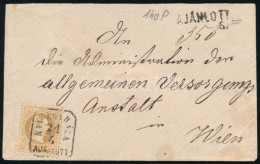 140P
AJÁNLOTT
An
die Administration der
allgemeinen Versorgungs
Anstalt
in
Wien
AJÁNLOTT